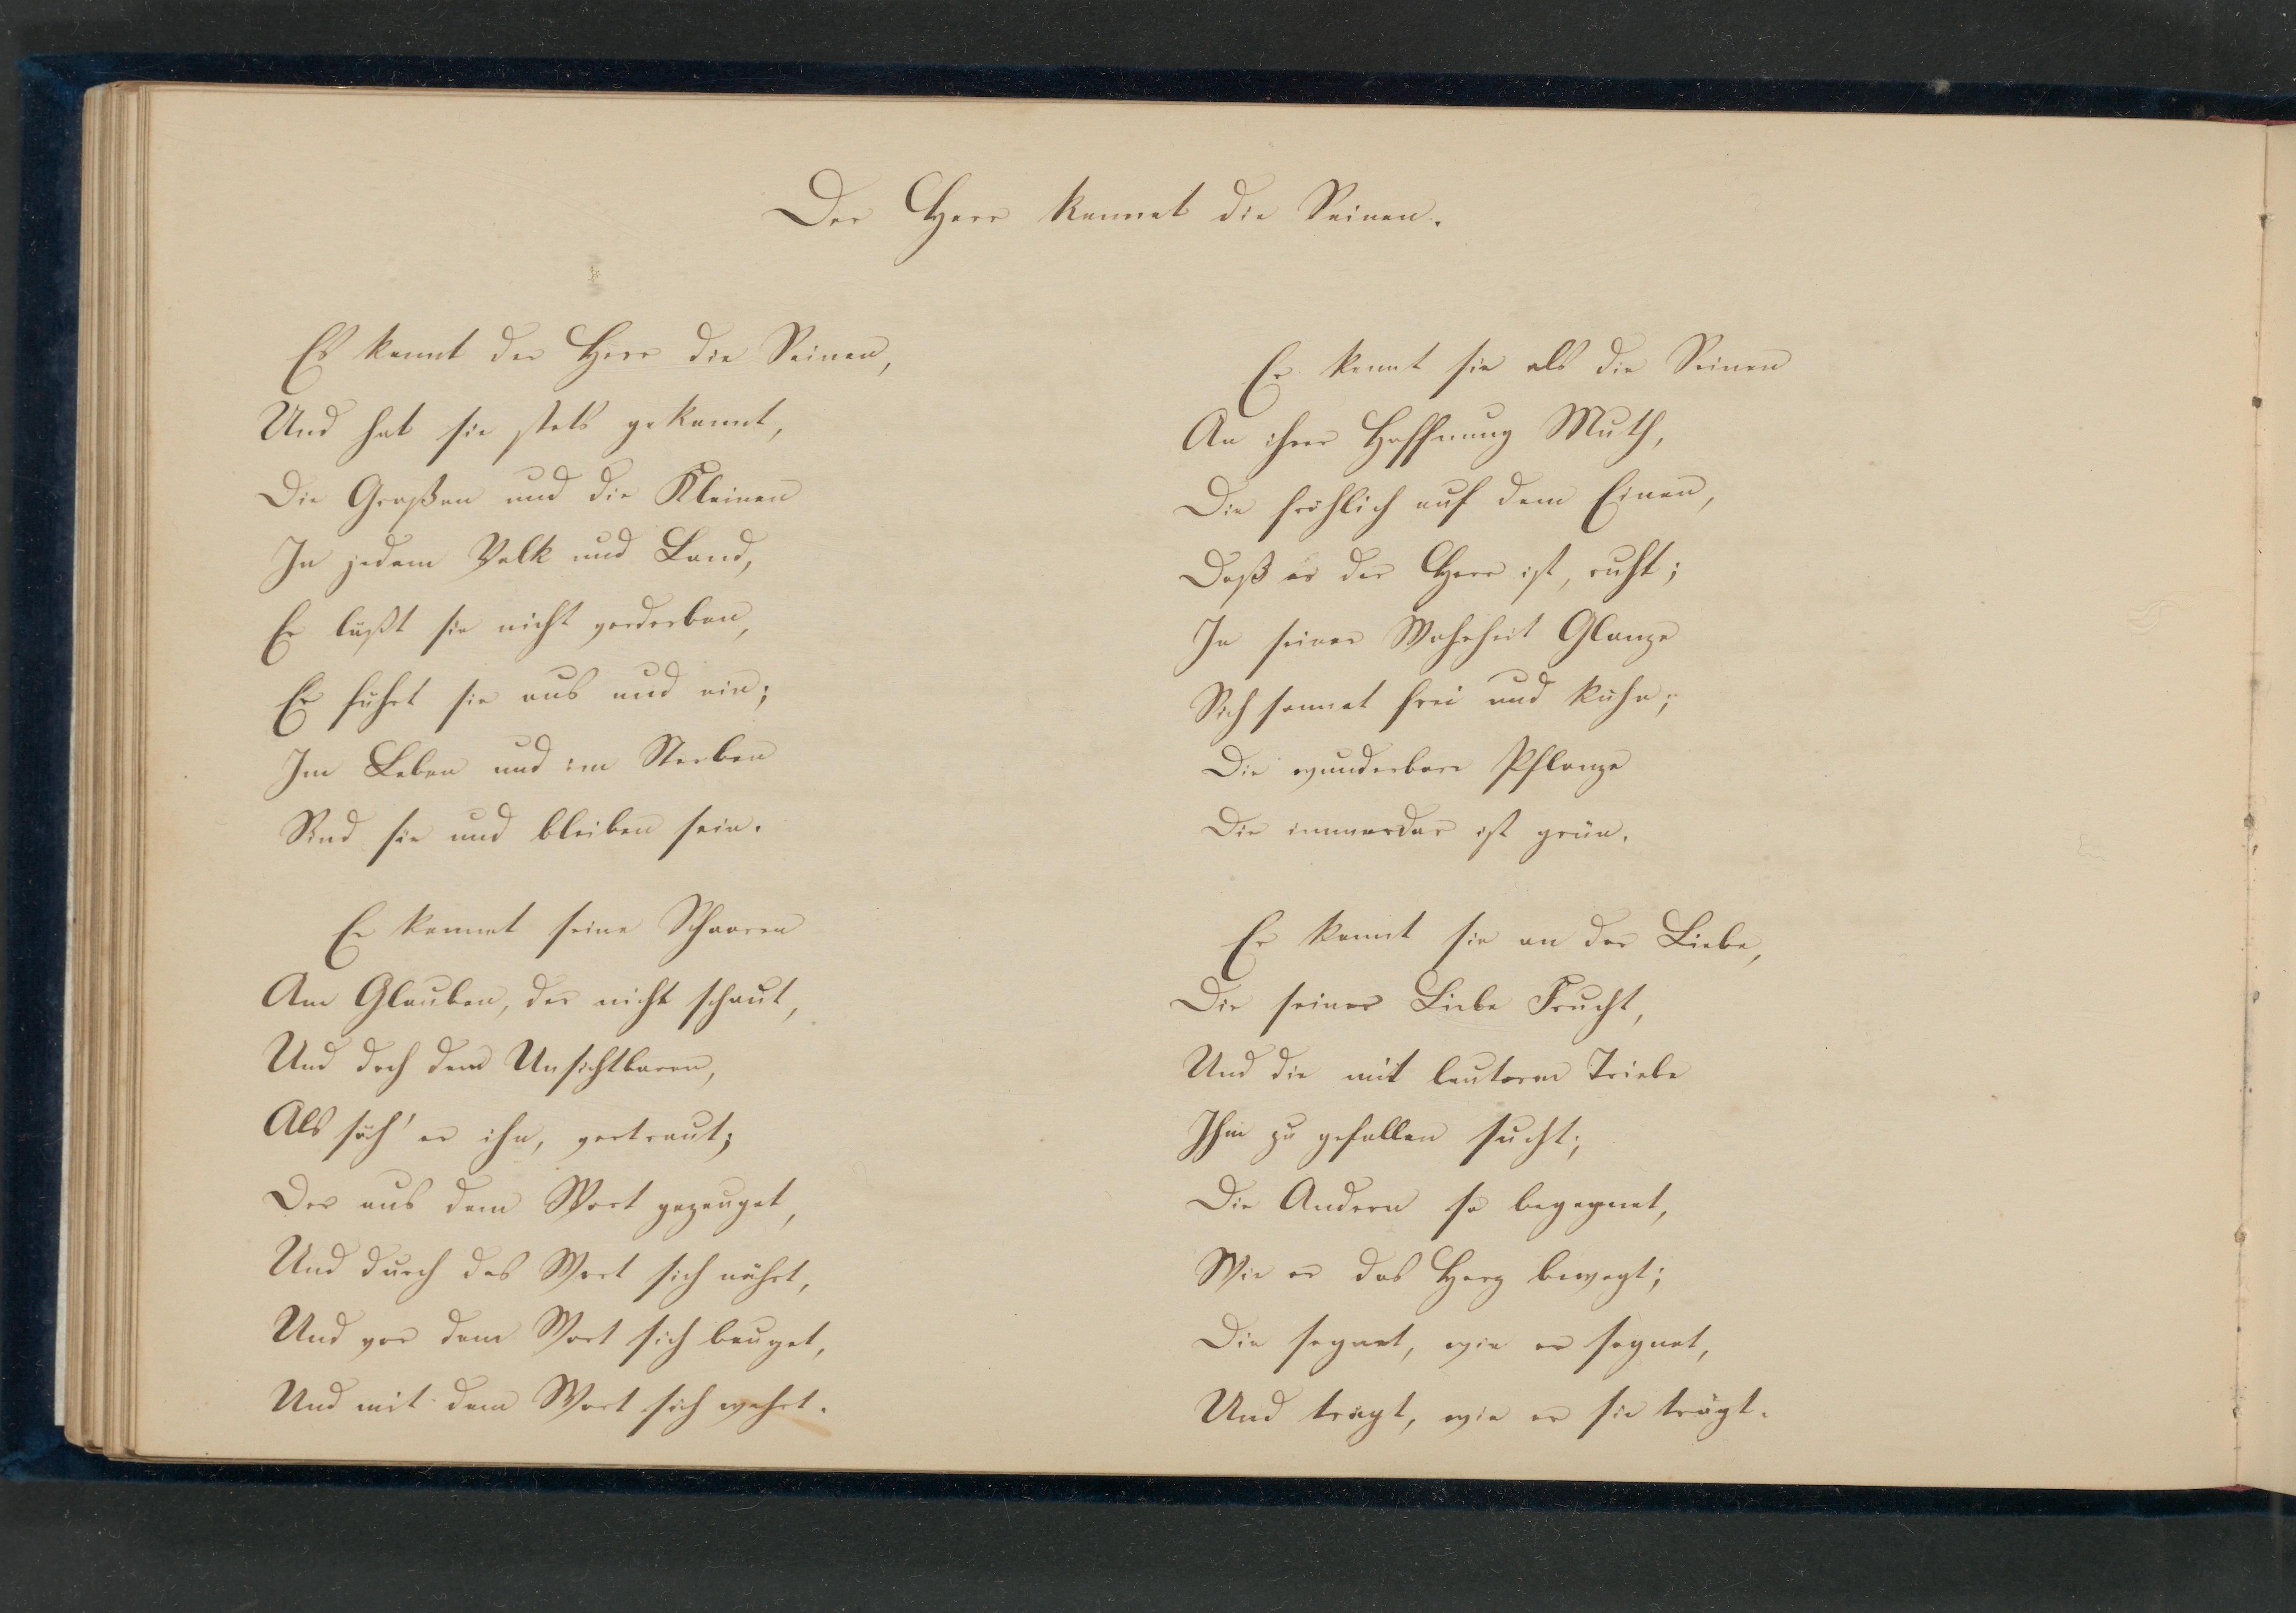 Der Herr kennet die Seinen.
Es kennt der Herr die Seinen,
Und hat sie stets gekannt,
Die Großen und die Kleinen
In jedem Volk und Land,
Er läßt sie nicht verderben,
Er führt sie aus und ein;
Im Leben und im Sterben
Sind sie und bleiben sein.
Er kennet seine Schaaren
Am Glauben, der nicht schaut,
Und doch dem Unsichtbaren,
Als säh' er ihn, vertraut;
Der aus dem Wort gezeuget,
Und durch das Wort sich nährt,
Und vor dem Wort sich beuget,
Und mit dem Wort sich wehrt.
Er kennt sie als die Seinen
An ihrer Hoffnung Muth,
Die fröhlich auf dem Einen,
Daß er der Herr ist, ruht;
In seiner Wahrheit Glanze
Sich sonnet frei und kühn;
Die wunderbare Pflanze
Die immerdar ist grün.
Er kennt sie an der Liebe,
Die seiner Liebe Frucht,
Und die mit lauterm Triebe
Ihm zu gefallen sucht;
Die Andern so begegnet,
Wie er das Herz bewegt;
Die segnet, wie er segnet,
Und trägt, wie er sie trägt.